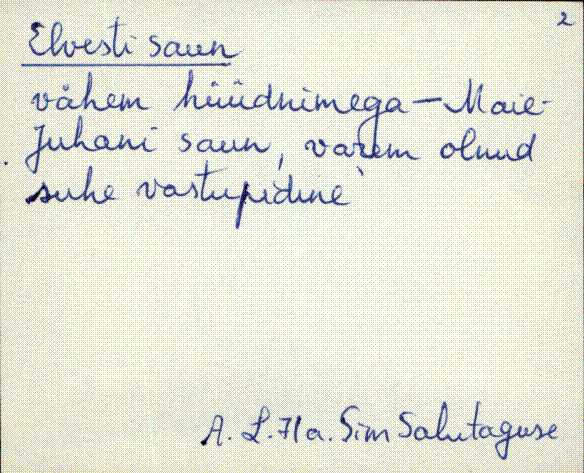 2
Elvesti saun
vähem hüüdnimega – Maie-
Juhani saun, varem olnud
suhe vastupidine
A. L. 71a. Sim Salutaguse